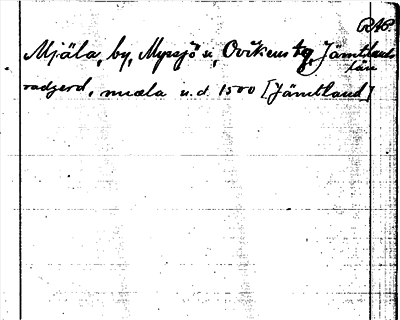 RAP.
Mjäla, by, Myssjö s., Ovikens tg, Jämtlands
län
radzerd, miæla u.d. 1500 [Jämtland]